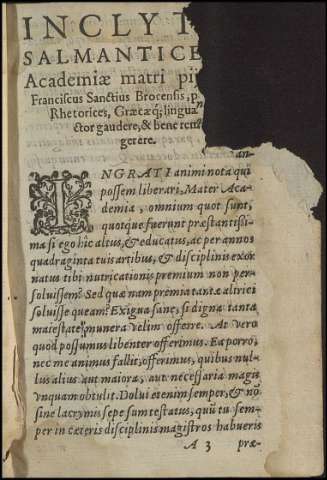 INCLYT
SALMANTICE
Academiæ matri pi
Franciscus Sanctius Brocensis, p
Rhetorices, Græcæq; lingua
ctor gaudere, & bene rem
gerere.
INGRATI animi nota qui
possem liberari, Mater Aca-
demia, omnium quot sunt,
quotque fuerunt præstantissi-
ma si ego hic altus, & educatus, ac per annos
quadraginta tuis artibus, & disciplinis exor
natus tibi nutricationis premium non per-
soluissem? Sed quæ nam prēmia tantæ altrici
soluisse queam? Exigua sanè, si digna tanta
maiestate munera velim offerre. At vero
quod possumus libenter offerimus. Ea porrò,
nec me animus fallit, offerimus, quibus nul-
lus alius aut maiora, aut necessaria magis
vnquam obtulit. Dolui etenim semper, & nō
sine lacrymis sepe sum testatus, quū tu sem-
per in cæteris disciplinis magistros habueris
A 3 præ-